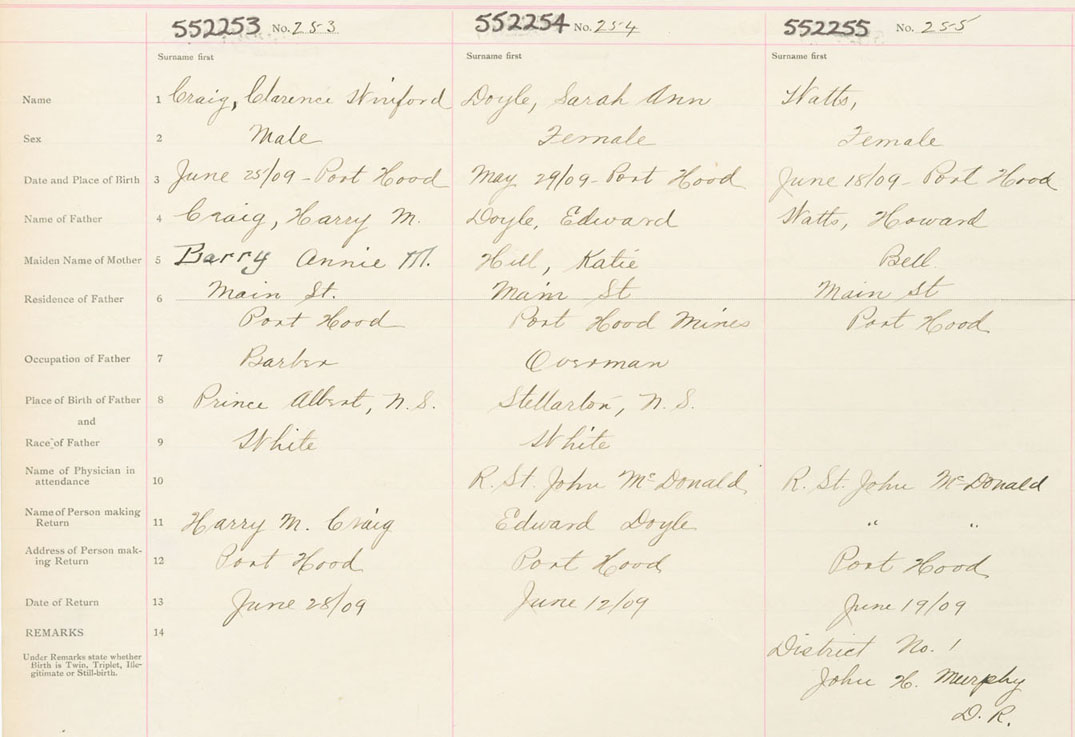 552253 No. 253 552254 No. 254 552255 No. 255
Surname first Surname first Surname first
Name 1 Craig, Clarence Winiford Doyle, Sarah Ann Watts,
Sex 2 Male Female Female
Date and Place of Birth 3 June 25/09 - Port Hood May 29/09 - Port Hood June 18/09 - Port Hood
Name of Father 4 Craig, Harry M. Doyle, Edward Watts, Howard
Maiden Name of Mother 5 Barry Annie M. Hill, Katie Bell
Residence of Father 6 Main St. Main St Main St
Port Hood Port Hood Mines Port Hood
Occupation of Father 7 Barber Overman
Place of Birth of Father 8 Prince Albert, N.S. Stellarton, N.S.
and
Race of Father 9 White White
Name of Physician in
attendance 10 R. St. John McDonald R. St. John McDonald
Name of Person making
Return 11 Harry M. Craig Edward Doyle " "
Address of Person mak-
ing Return 12 Port Hood Port Hood Port Hood
Date of Return 13 June 28/09 June 12/09 June 19/09
REMARKS 14
Under Remarks state whether
Birth is Twin, Triplet, Ille-
gitimate or Still-birth.
District No. 1
John H. Murphy
D.R.